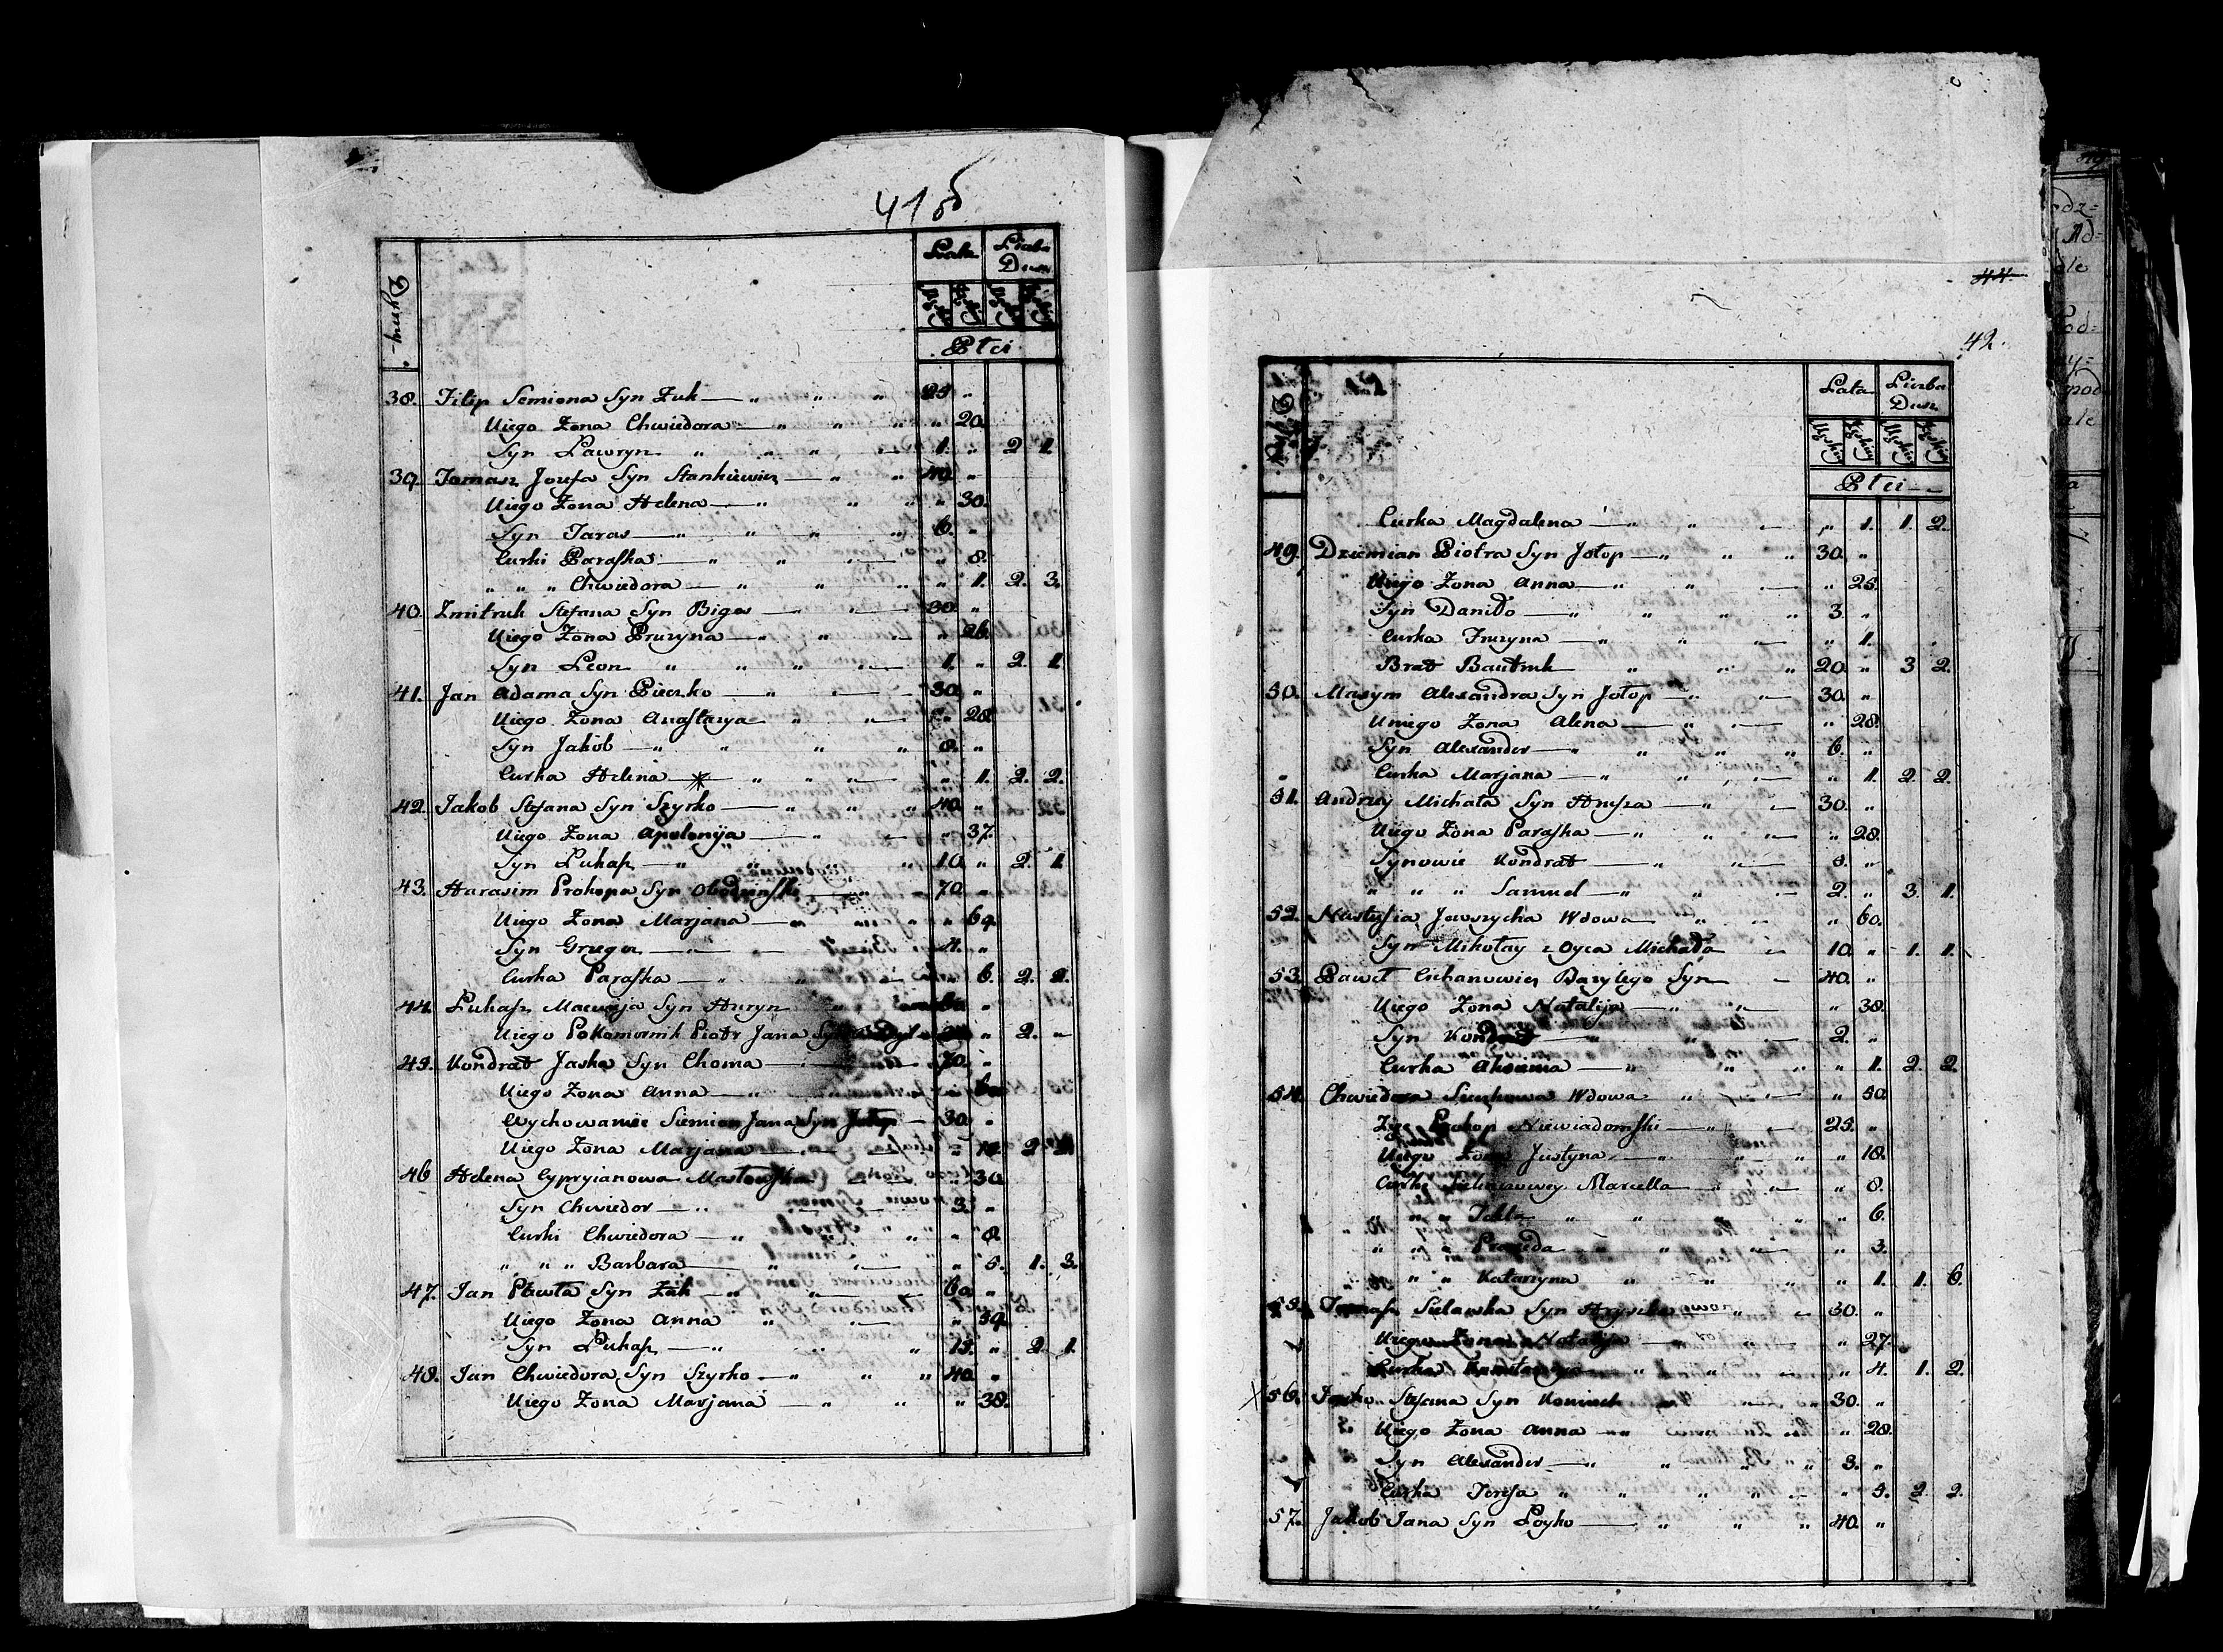 41 об
Dymy
Lata Liczba Dusz
Męskiey Żeńskiey Męskiey Żeńskiey
Płci
38. Filip Semiona Syn Żuk — " " " 25. "
Uiego Żona Chwiedora — " " " " 20.
Syn Ławryn " " " — 1. " 2 1.
39. Tomasz Jozefa Syn Stankiewicz — " " 40. "
Uiego Żona Helena — " " " " 30.
Syn Taras — " " " " 6. "
Curki Paraska — " " — " 8.
" " " Chwiedora — " " " " 1. 2. 3.
40. Zmitruk Stefana Syn Bigos — " — 30. "
Uiego Żona Pruzyna — " " — " 26.
Syn Leon " " " — 1. " 2. 1
41. Jan Adama Syn Pieczko — " — 30. "
Uiego Żona Anastazya — " " — " 28.
Syn Jakób — " " " " 8. "
Curka Helena — " " " — " 1. 2. 2.
42. Jakob Stefana Syn Szyrko — " " " 40. "
Uiego Żona Apolonija — " — " 37.
Syn Łukasz — " " " " 10. " 2. 1
43. Harasim Prokopa Syn — 70. "
Uiego Żona Marjana — " " " 69.
Syn Grzegor — " — 4. "
Curka Paraska — " " — " 6. 2. 2.
44. Łukasz Macieja Syn Huryn "
Uiego Pokomornik Piotr Jana Syn " 2. "
45. Kondrat Jaska Syn Choma — 70. "
Uiego Żona Anna — "
Wychowaniec Siemion Jana Syn Jotop — 30. "
Uiego Żona Marjana — " 2
46 Helena Cypryianowa — " 30.
Syn Chwiedor — " — 3. "
Curki Chwiedora — " " " 8.
" " " Barbara — " — " 5. 1. 3.
47. Jan Pawła Syn Żuk — " — 60. "
Uiego Żona Anna " — " 59.
Syn Łukasz — " " " 15. " 2. 1.
48. Jan Chwiedora Syn Szyrko — " " " 40. "
Uiego Żona Marjana — " " " 38.
44.
42.
Dymy
Lata Liczba Dusz
Męskiey Żeńskiey Męskiey Żeńskiey
Płci
Curka Magdalena — " " — " 1. 1. 2.
49. Dziemian Piotra Syn Jotop — " " " 30. "
Uiego Żona Anna — " " — " 25.
Syn Daniło — " " " " 3. "
Curka Fruzyna — " " — " 1.
Brat Bautruk " " " 20. " 3 2.
50. Maxym Alexandra Syn Jotop — " — 30. "
Uniego Żona Alena — " — " 28.
Syn Alexander — " " " " 6. "
Curka Marjana — " " — " 1. 2. 2.
51. Andrzey Michała Syn Hrysza — " — 30. "
Uiego Żona Paraska — " " — " 28.
Synowie Kondrat — " — 5. "
" " " Samuel — " " — 2. " 3. 1.
52. Nastusia Jawszycha Wdowa — " — " 60.
Syn Mikołay z Oyca Michała — 10. " 1. 1.
53. Paweł Cichanowicz Bazylego Syn — 40. "
Uiego Żona Natalija — " " — " 38.
Syn Kondrat — " — 2. "
Curka Akseunia — " " " " 1. 2. 2.
54. Chwiedora Wdowa " — " 50.
Zięć Prokop Niewiadomski — " — 25. "
Uiego Żona Justyna — " " " " 18.
Curki Marcella — " — " 8.
" " " Tekla " " " " 6.
" " " " " — " 3.
" " Katarzyna " " " " 1. 1. 6.
55. Syn " — 30. "
Uiego Żona Natalija " " " 27.
Curka " " — " 4. 1. 2.
56. Jasko Stefana Syn " " 30. "
Uiego Żona Anna — " 28.
Syn Alexander — " " " " 3. "
Curka Teresa " " " — " 5. 2. 2.
57. Jakob Jana Syn Łoyko — " " " 40. "